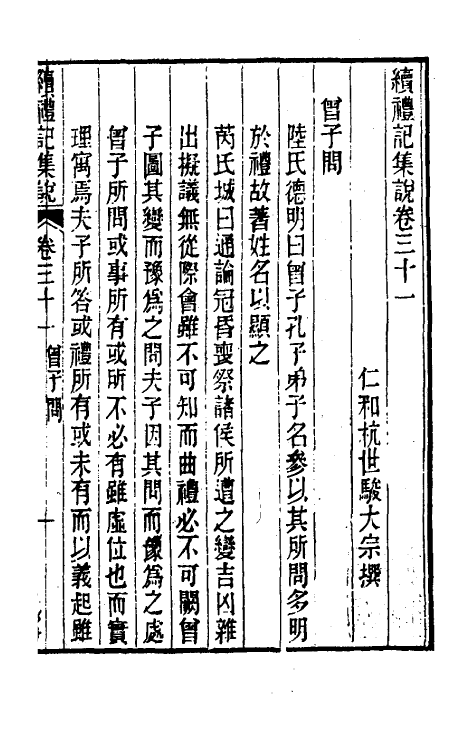 續禮記集說卷三十一
仁和杭世駿大宗撰
曾子問
陸氏德明曰曾子孔子弟子名參以其所問多明
於禮故著姓名以顯之
芮氏城曰通論冠昏喪祭諸侯所遭之變吉凶雜
出擬議無從際會雖不可知而曲禮必不可闕曾
子圖其變而豫為之問夫子因其問而豫為之處
曾子所問或事所有或所不必有雖虛位也而實
理寓焉夫子所答或禮所有或未有而以義起雖
續禮記集說 卷三十一 曾子問 一